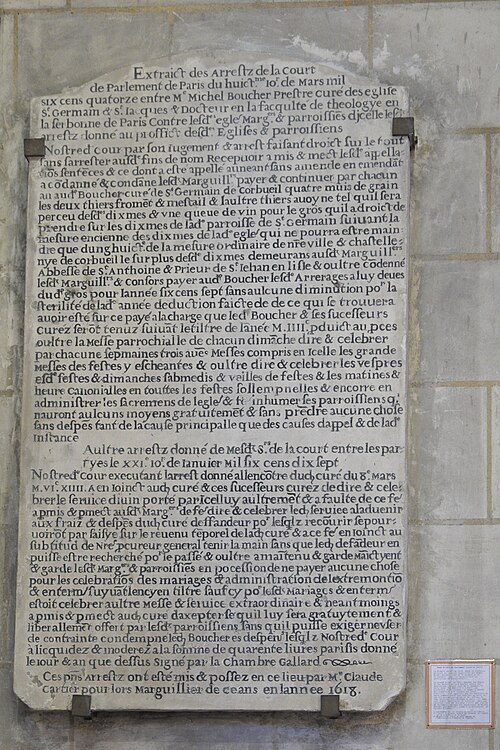 Extraict des Arrestz de la Court
de Parlement de Paris du huict.me io.r de Mars mil
six cens quatorze entre M.e Michel Boucher Prestre curé des eglise
S.t Germain & S.t Iacques & Docteur en la faculte de theologye en
la serbonne de Paris Contre lesd. egle Marg.rs & parroissiēs d'icelle lesd.
arrestz donne au proffict desd. Eglises & parroissiens
Nostred cour par son iugement & arrest faisant droict sur le tout
sans sarrester ausd fins de nom Recepuoir a mis & met lesd appella
tiōs sentēces & ce dont a este appelle anneant sans amende en emendāt
a cōdanne & condāne lesd Marguill.rs payer & continuer par chacun
an aud Boucher cure de S.t Germain de Corbueil quatre muis de grain
les deux thiers fromēt & mestail & laultre thiers auoyne tel quil sera
perceu desd. dixmes & vne queue de vin pour le gros quil a droict de
prendre sur les dixmes de lad. parroisse de S.t Germain suiuant la
mesure encienne des dixmes de lad. egle qui ne pourra estre main
dre que dung huict.e de la mesure ordinaire de nre ville & chastelle
nye de corbueil le surplus desd. dixmes demeurans ausd Marguill.ers
Abbesse de S.t Anthoine & Prieur de S.t Iehan en lisle & oultre cōdenné
lesd Marguill.rs & consors payer aud. Boucher lesd. Arrerages a luy deues
dud. gros pour lannée six cens sept sans aulcune diminution po.r la
sterilité de lad année deduction faicte de ce qui se trouuera
auoir esté sur ce payé a la charge que led Boucher & ses sucesseurs
Curez serōt tenuz suiuāt le tiltre de lanée M.IIII. pduict au pces
oultre la Messe parrochialle de chacun dimāche dire & celebrer
par chacune sepmaines trois aues Messes compris en Icelle les grande
Messes des festes y escheantes & oultre dire & celebrer les vespres
esd. festes & dimanches sabmedis & veilles de festes & les matines &
heure Canonialles en touttes les festes sollempnelles & encorre en
administrer les sacremens de legle & fe inhumer les parroissiens q.
nauront aulcuns moyens gratuitemēt & sans prēdre aucune chose
sans despēs tant de la cause principalle que des causes dappel & de lad
Instance
Aultre arrestz donné de Mesd. S.rs de la court entre les par
tyes le XXI. io.r de Ianuier Mil six cens dix sept
Nostred cour executant larrest donné allencōtre dud. cure du 8. Mars
M.VI.XIIII. A enioinct aud. curé & ces sucesseurs curez de dire & cele
brer le seruice diuin porté par Icelluy aultremēt & a faulte de ce fe
apmis & pmect ausd Marg.rs de fe dire & celebrer led. seruice aladuenir
aux fraiz & despēs dud. curé deffandeur po.r lesqlz recourir se pour
uoirōt par saisye sur le reuenu tēporel de lad. cure & a ce fe enioinct au
subtitud de Nre pcureur general tenir la main sans que led. defādeur en
puisse estre recherché po.r le passé & oultre amaītenu & garde maictyent
& garde lesd Marg.rs & parroissiēs en pocession de ne payer aucune chose
pour les celebratiōs des mariages & administration de lextremontiō
& enterm.s suyuāt lencyen tiltre sauf cy po.r lesd. Mariages & enterm.s
estoit celebrer aultre Messe & seruice extraordinaire & neantmoings
apmis & pmect aud. cure daxepter se quil luy sera gratuytement &
liberallemēt offert par lesd parroissiens sans quil puisse exiger ne vser
de contrainte condempne led. Boucher es despens lesqlz Nostred. Cour
a licquidez & moderez a la somme de quarente liures parisis donné
le iour & an que dessus Signé par la Chambre Gallard
Ces pns Arrestz ont esté mis & possez en ce lieu par M.e Claude
Cartier pour lors Marguillier de ceans en lannee 1618.